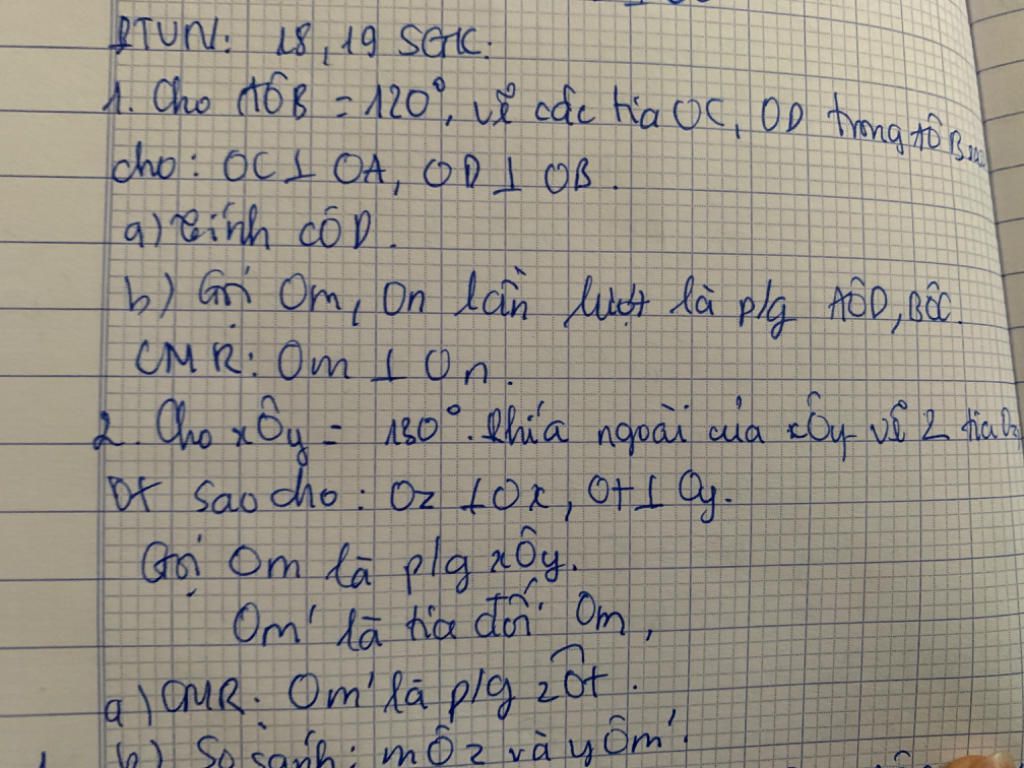 BTVN: 18, 19 SGK.
1. Cho AÔB = 120°, vẽ các tia OC, OD trong AÔB sao
cho: OC ⊥ OA, OD ⊥ OB.
a) Tính CÔD.
b) Gọi Om, On lần lượt là p/g AÔD, BÔC.
CMR: Om ⊥ On.
2. Cho xÔy = 130°. Phía ngoài của xÔy vẽ 2 tia Oz,
Ot sao cho: Oz ⊥ Ox, Ot ⊥ Oy.
Gọi Om là p/g xÔy.
Om' là tia đối Om,
a) CMR: Om' là p/g zÔt.
b) So sánh: mÔz và yÔm'.